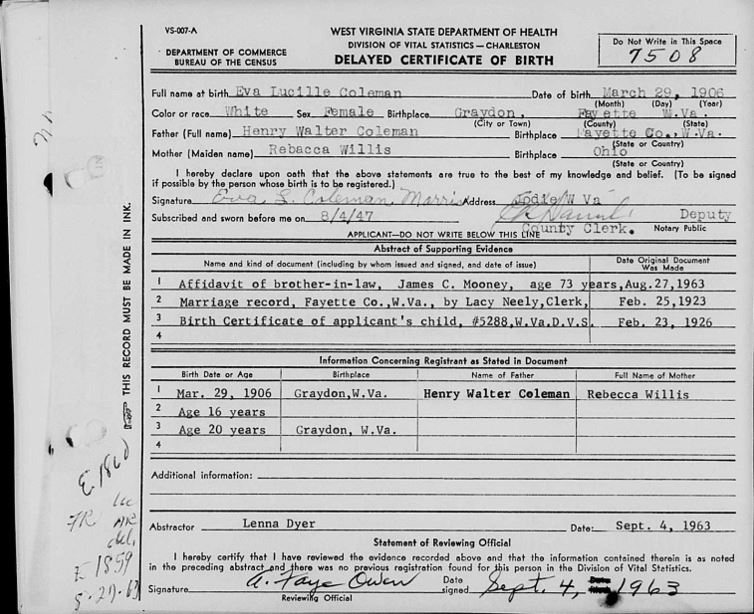 VS-007-A
DEPARTMENT OF COMMERCE
BUREAU OF THE CENSUS
WEST VIRGINIA STATE DEPARTMENT OF HEALTH
DIVISION OF VITAL STATISTICS—CHARLESTON
DELAYED CERTIFICATE OF BIRTH
Do Not Write in This Space
7508
Full name at birth Eva Lucille Coleman Date of birth March 29, 1906
(Month) (Day) (Year)
Color or race White Sex Female Birthplace Graydon, Fayette W.Va.
(City or Town) (County) (State)
Father (Full name) Henry Walter Coleman Birthplace Fayette Co., W.Va.
(State or Country)
Mother (Maiden name) Rebacca Willis Birthplace Ohio
(State or Country)
I hereby declare upon oath that the above statements are true to the best of my knowledge and belief. (To be signed
if possible by the person whose birth is to be registered.)
Signature Eva L. Coleman Morris Address Jodie W Va
Subscribed and sworn before me on 8/4/47 Deputy
County Clerk. Notary Public
APPLICANT—DO NOT WRITE BELOW THIS LINE
Abstract of Supporting Evidence
Name and kind of document (including by whom issued and signed, and date of issue) Date Original Document
Was Made
1 Affidavit of brother-in-law, James C. Mooney, age 73 years, Aug.27,1963
2 Marriage record, Fayette Co.,W.Va., by Lacy Neely,Clerk, Feb. 25,1923
3 Birth Certificate of applicant's child, #5288,W.Va.D.V.S. Feb. 23, 1926
4
Information Concerning Registrant as Stated in Document
Birth Date or Age Birthplace Name of Father Full Name of Mother
1 Mar. 29, 1906 Graydon,W.Va. Henry Walter Coleman Rebecca Willis
2 Age 16 years
3 Age 20 years Graydon, W.Va.
4
Additional information:
Abstractor Lenna Dyer Date: Sept. 4, 1963
Statement of Reviewing Official
I hereby certify that I have reviewed the evidence recorded above and that the information contained therein is as noted
in the preceding abstract and there was no previous registration found for this person in the Division of Vital Statistics.
Signature A. Faye Owen Date
signed Sept. 4, 1963
Reviewing Official
THIS RECORD MUST BE MADE IN INK.
E 1860
E 1859